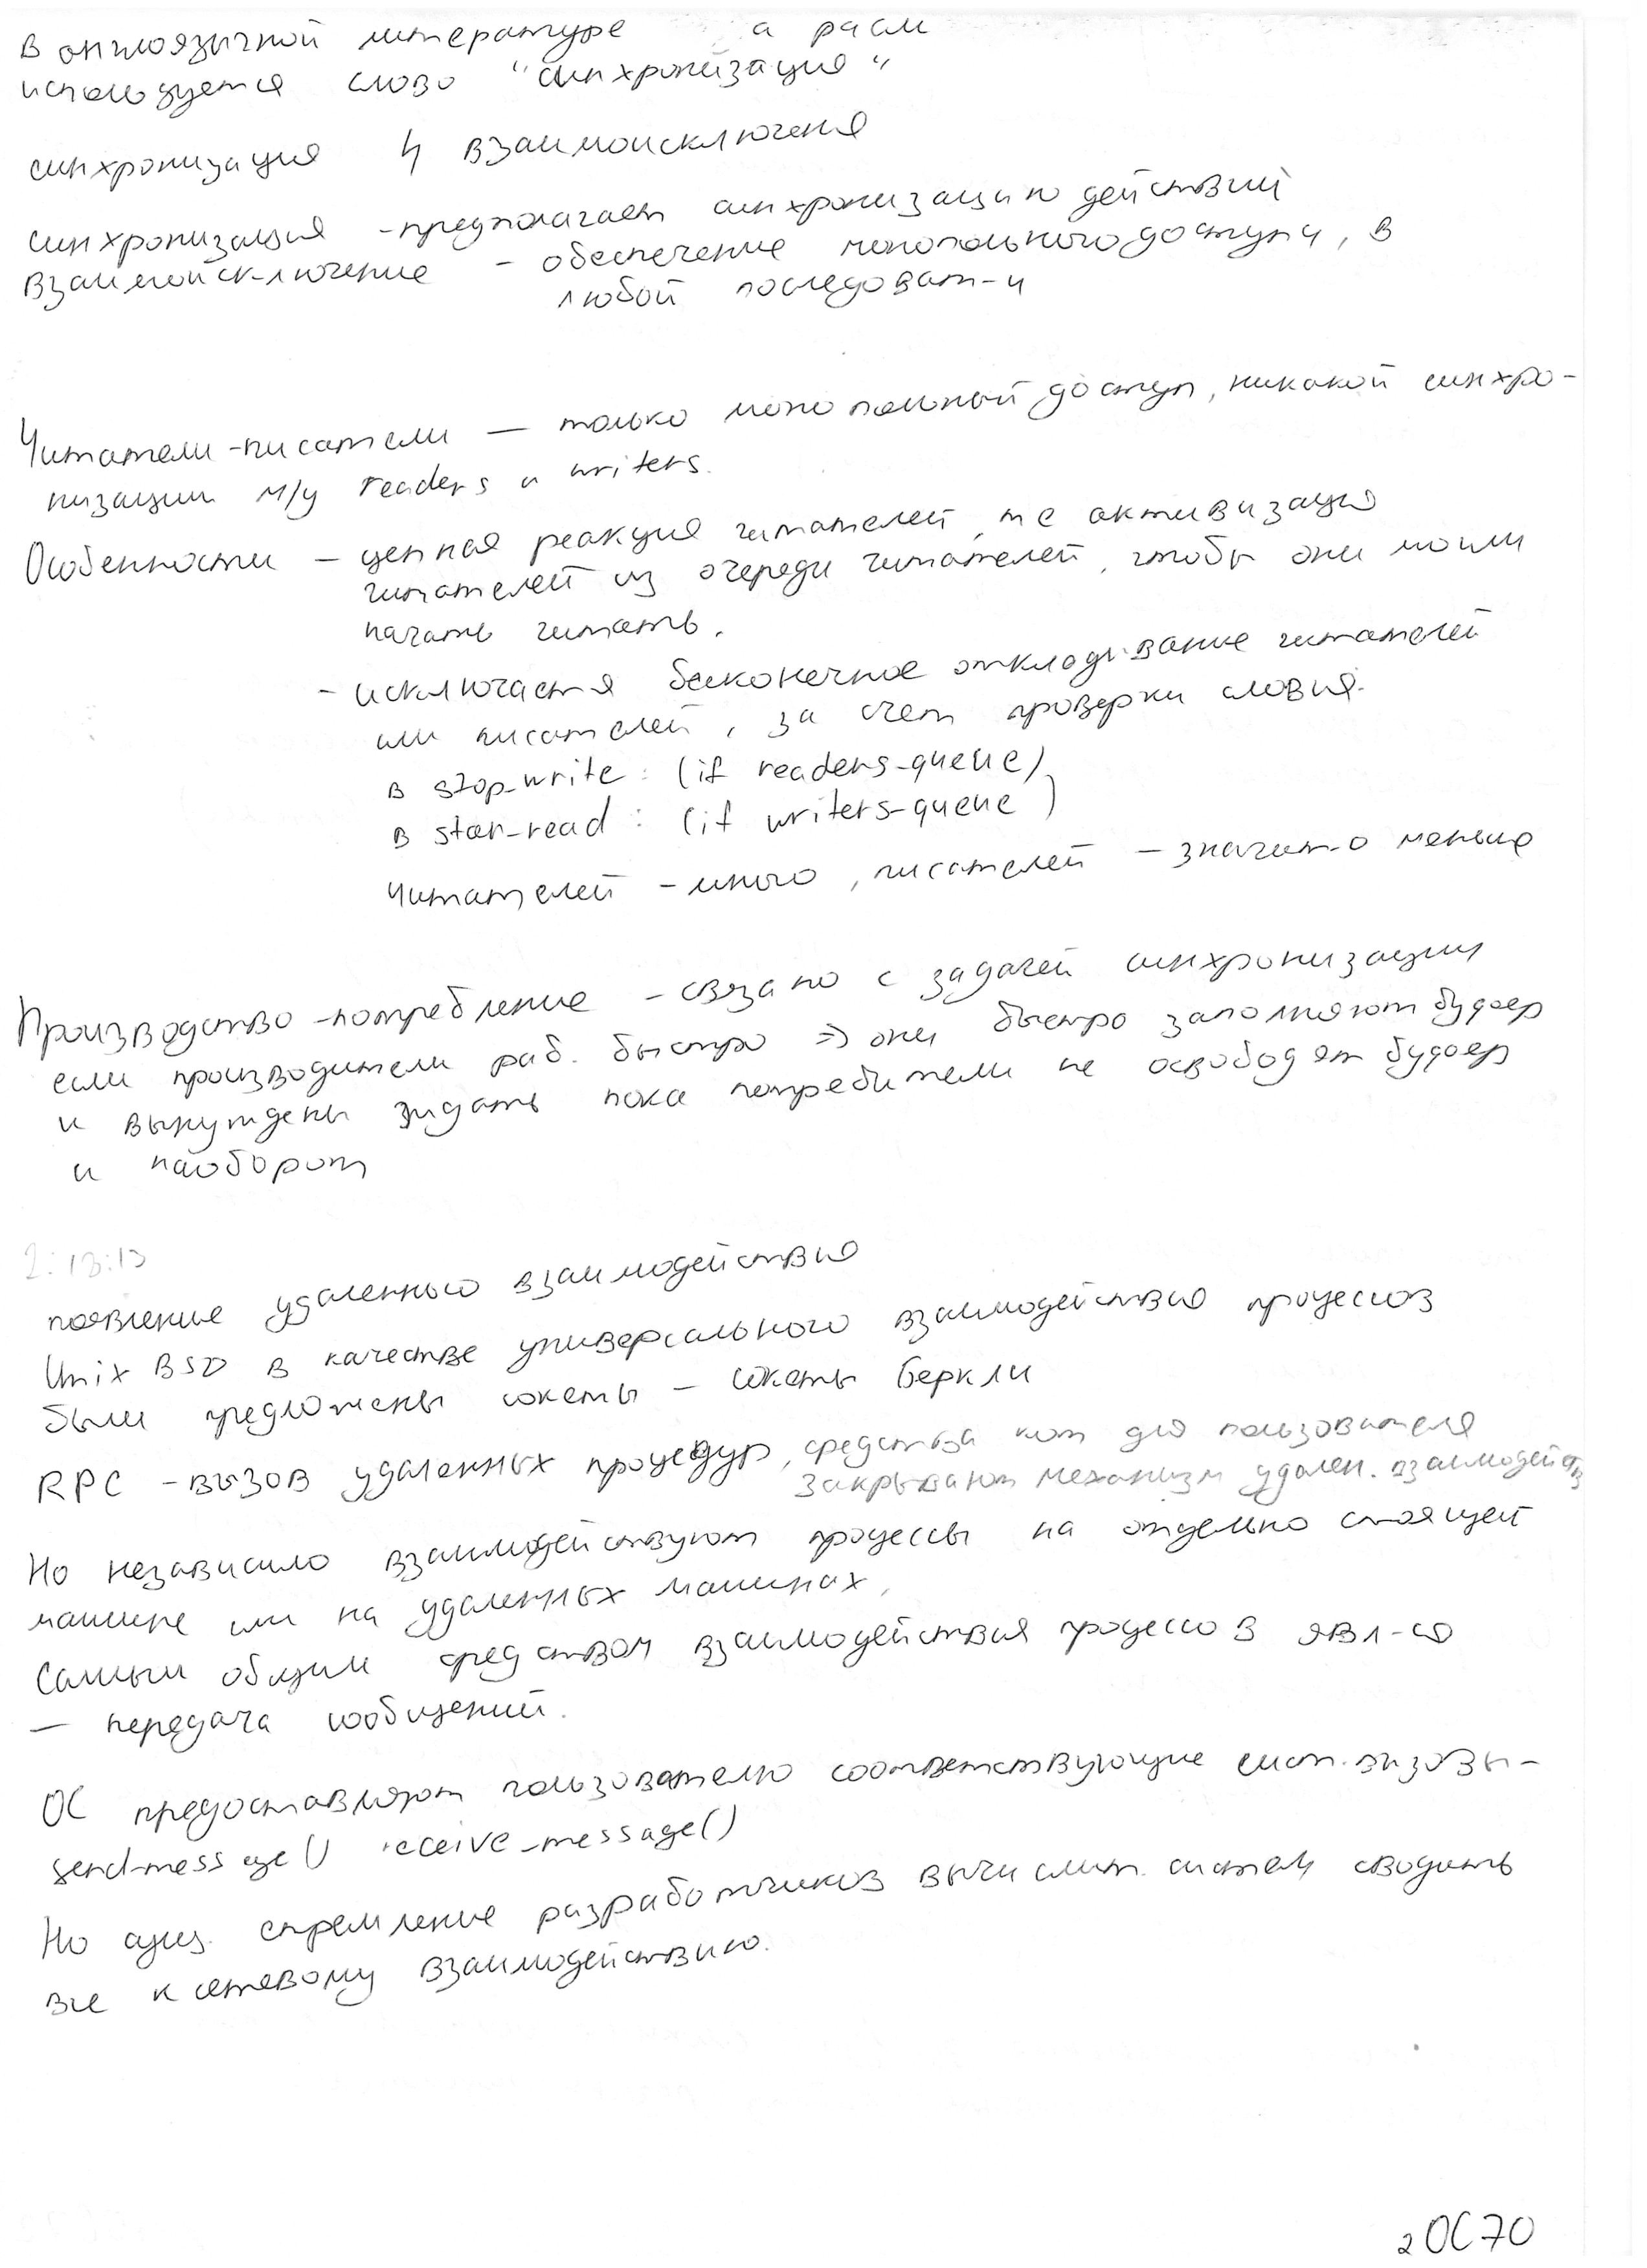 В англоязычной литературе а расм
используется слово "синхронизация"
синхронизация и взаимоисключения
синхронизация - предполагает синхронизацию действий
взаимоисключение - обеспечение монопольного доступа, в
любой последоват-и
Читатели-писатели — только монопольный доступ, никакой синхро-
низации м/у readers и writers.
Особенности - цепная реакция читателей, те активизация
читателей из очереди читателей, чтобы они могли
начать читать.
- исключается бесконечное откладывание читателей
или писателей, за счет проверки условия.
в stop_write: (if readers-queue)
в star-read: (if writers-queue)
Читателей - много, писателей - значит-о меньше
Производство-потребление - связано с задачей синхронизации
если производители раб. быстро => они быстро заполняют буфер
и вынуждены ждать пока потребители не освободят буфер
и наоборот
2:13:13
появление удаленного взаимодействия
Unix BSD в качестве универсального взаимодействия процессов
были предложены сокеты - сокеты Беркли
RPC - вызов удаленных процедур, средства кот для пользователя
закрывают механизм удален. взаимодейств
Но независимо взаимодействуют процессы на отдельно стоящей
машине или на удаленных машинах,
Самым общим средством взаимодействия процессов явл-ся
— передача сообщений.
ОС предоставляют пользователю соответствующие сист. вызовы -
send-message() receive_message()
Но сущ. стремление разработчиков вычислит. систем сводить
все к сетевому взаимодействию.
2 ОС70